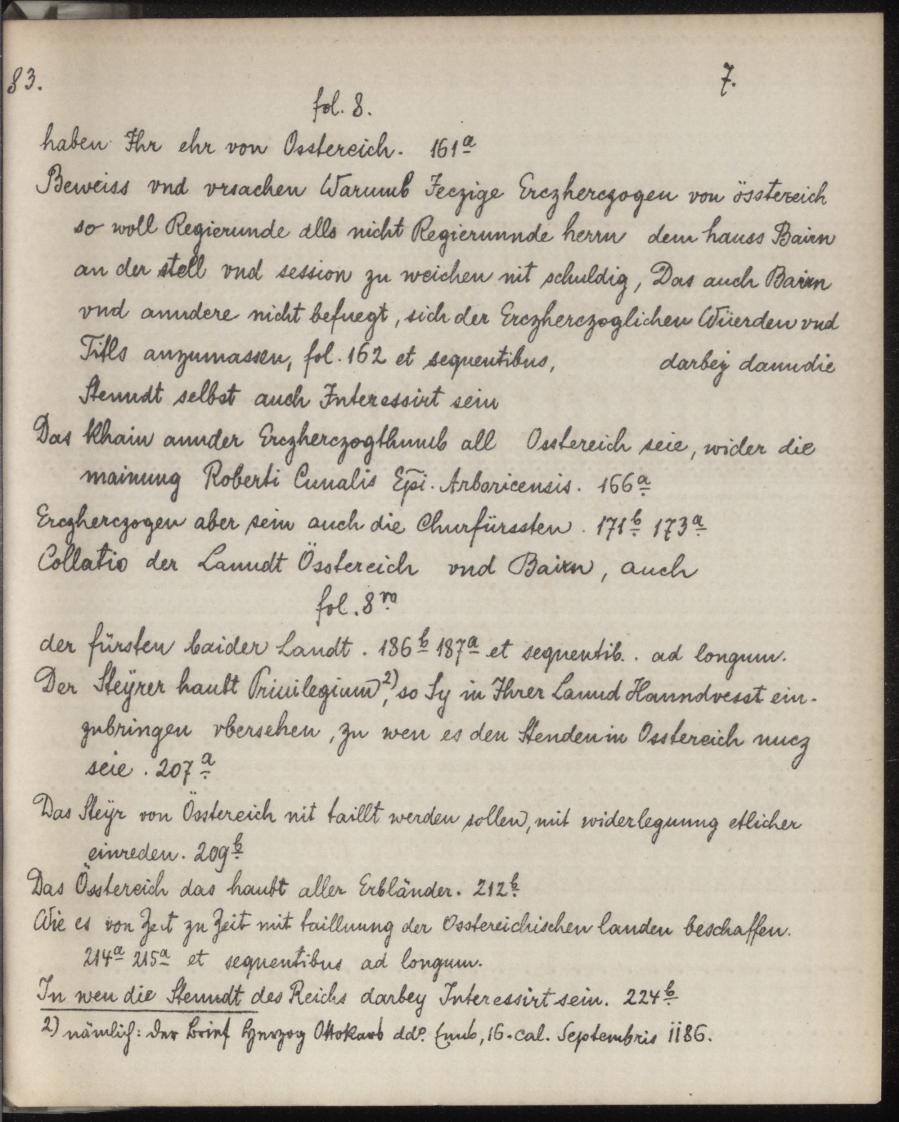 83. 7.
fol. 8.
haben Ihr ehr von Osstereich. 161a
Beweiss vnd vrsachen Warumb Jeczige Erczherczogen von össtereich
so woll Regierunde alls nicht Regierunnde herrn dem hauss Bairn
an der stell vnd session zu weichen nit schuldig, Das auch Bairn
vnd anndere nicht befuegt, sich der Erczherczoglichen Wüerden vnd
Titls anzumassen, fol. 162 et sequentibus, darbej dann die
Stenndt selbst auch Interessirt sein
Das khain annder Erczherczogthumb all Osstereich seie, wider die
mainung Roberti Cunalis Epi. Arboricensis. 166a
Erczherczogen aber sein auch die Churfürssten. 171b 173a
Collatio der Lanndt Össtereich vnd Bairn, auch
fol. 8m
der fürsten baider Landt. 186b 187a et sequentib. ad longum.
Der Steÿrer haubt Priuilegium 2), so Sy in Ihrer Lannd Hanndvesst ein-
zubringen vbersehen, zu wen es den Stenden in Osstereich nucz
seie. 207a
Das Steÿr von Össtereich nit taillt werden sollen, mit widerlegunng etlicher
einreden. 209b
Das Össtereich das haubt aller Erbländer. 212b
Wie es von Zeit zu Zeit mit taillunng der Osstereichischen landen beschaffen.
214a 215a et sequentibus ad longum.
In wen die Stenndt des Reichs darbey Interessirt sein. 224b
2) nämlich: der Brief Herzog Ottokars ddo. Enns, 16. cal. Septembris 1186.